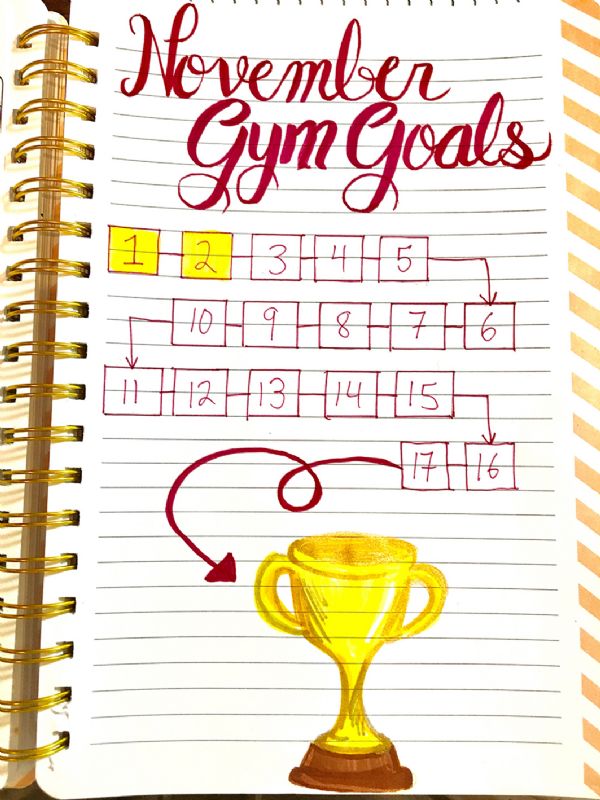 November
Gym Goals
1 2 3 4 5
10 9 8 7 6
11 12 13 14 15
17 16